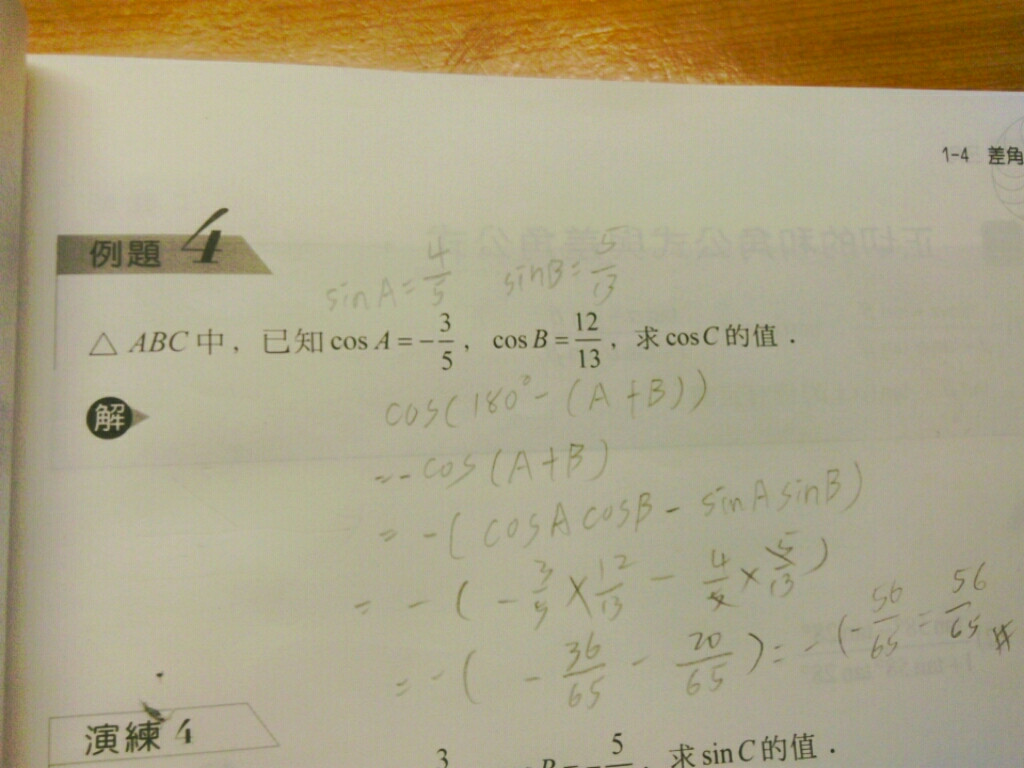 1-4 差角
例題 4
sinA=4/5 sinB=5/13
△ABC中，已知cosA=-3/5，cosB=12/13，求cosC的值．
解
cos(180°-(A+B))
=-cos(A+B)
=-(cosAcosB-sinAsinB)
=-(-3/5×12/13-4/5×5/13)
=-(-36/65-20/65)=-(-56/65=56/65#
演練4
求sinC的值．